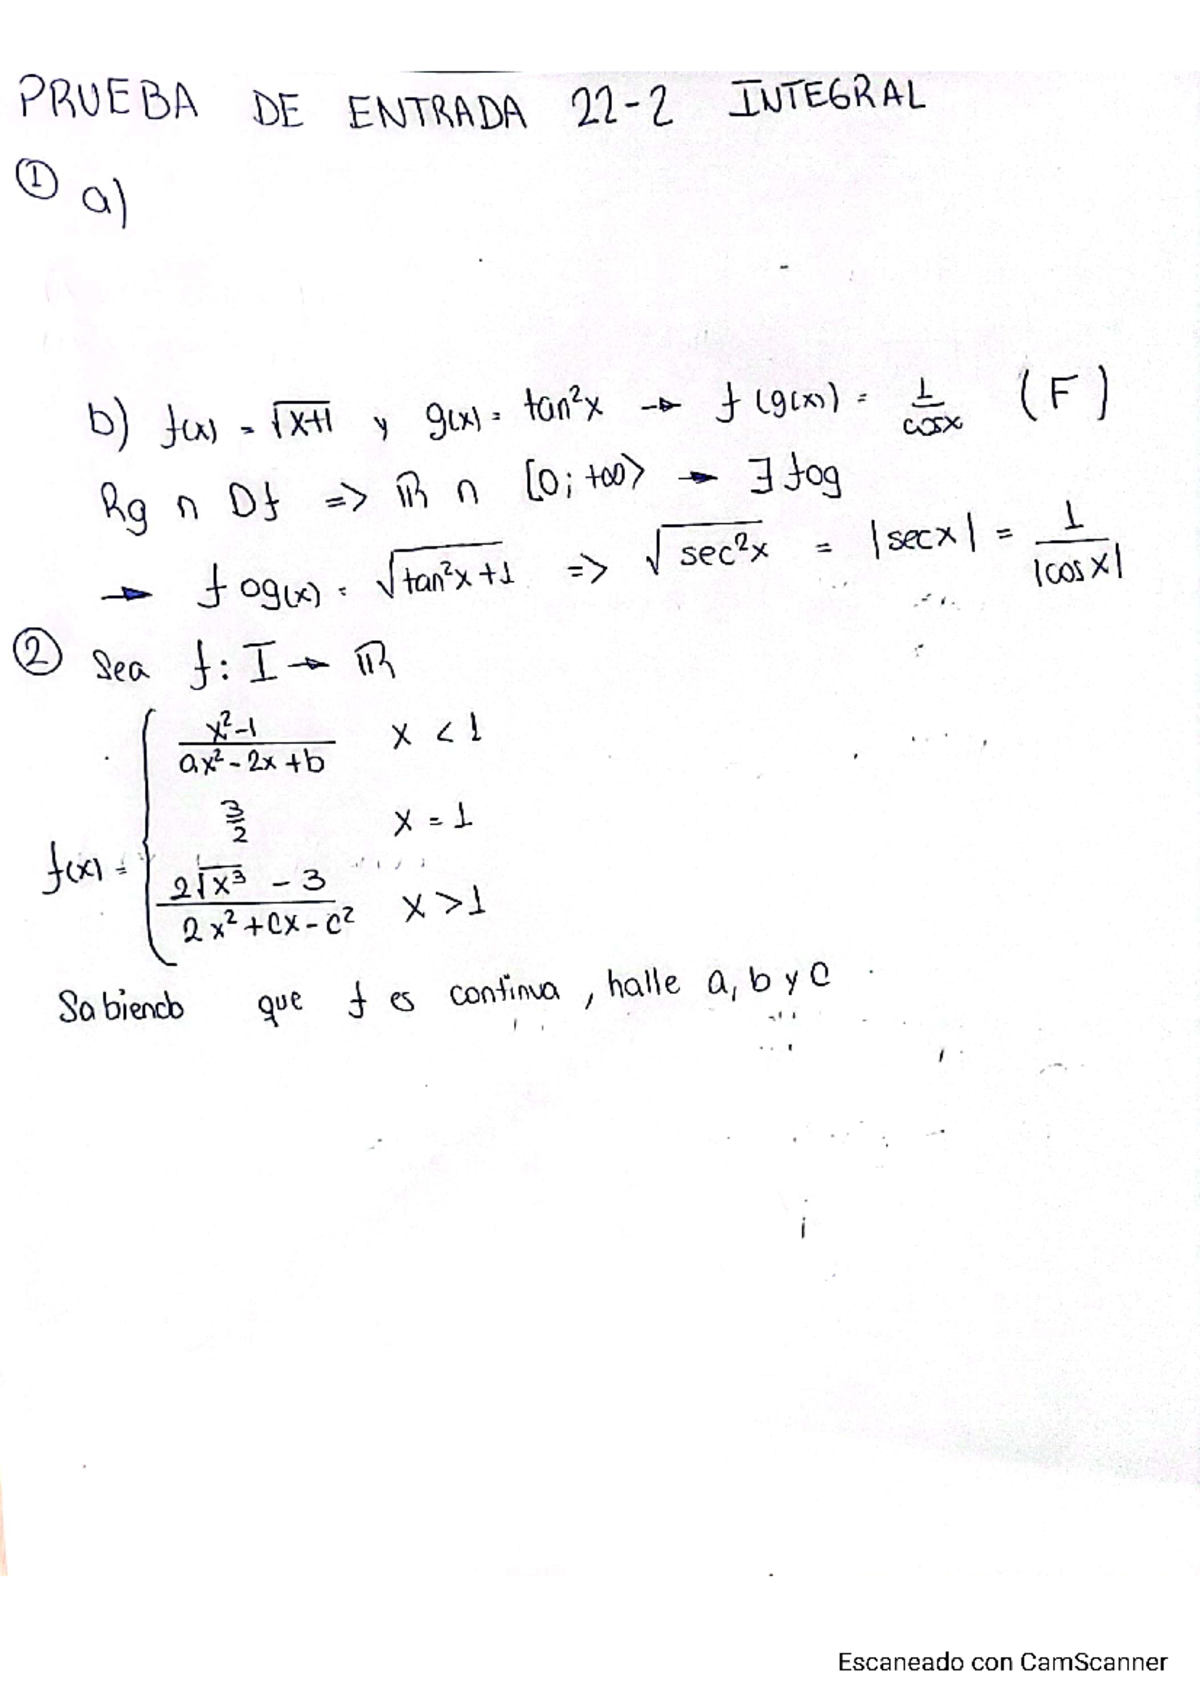 PRUEBA DE ENTRADA 22-2 INTEGRAL
① a)
b) f(x) = √(x+1) y g(x) = tan²x → f(g(x)) = 1/cosx (F)
Rg ∩ Df => ℝ ∩ [0; +∞⟩ → ∃ fog
→ fog(x) = √(tan²x+1) => √(sec²x) = |secx| = 1/|cosx|
② Sea f: I → ℝ
f(x) = {
(x²-1)/(ax²-2x+b) x < 1
3/2 x = 1
(2√x³ - 3)/(2x²+cx-c²) x > 1
Sabiendo que f es continua, halle a, b y c
Escaneado con CamScanner